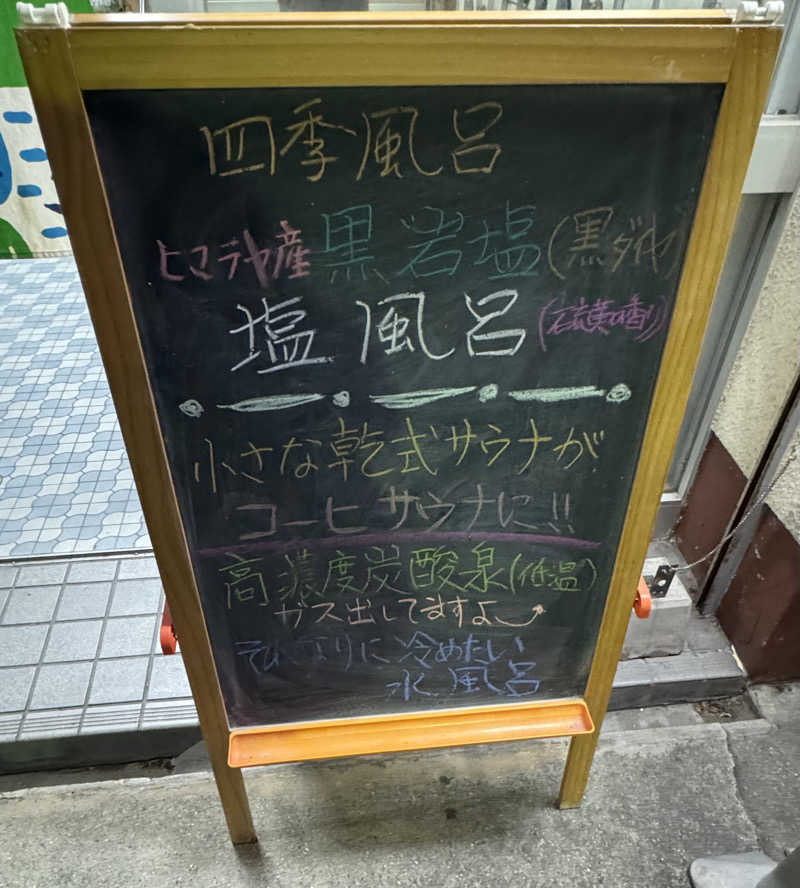 四季風呂
ヒマラヤ産黒岩塩(黒ダイヤ)
塩風呂(硫黄の香り)
小さな乾式サウナが
コーヒサウナに!!
高濃度炭酸泉(低温)
ガス出してますよ
それなりに冷めたい
水風呂